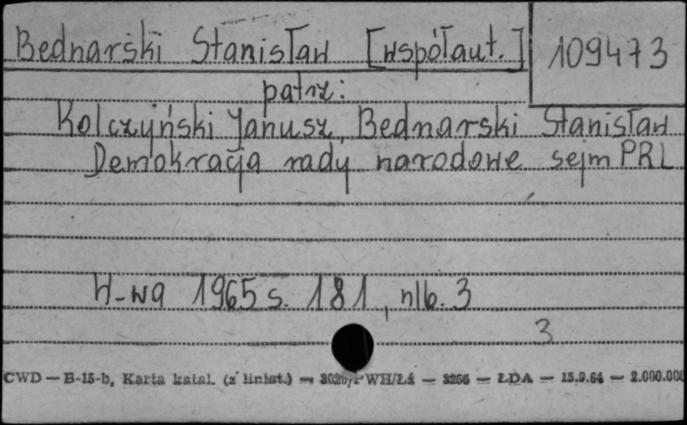 Bednarski Stanisław [współaut.]
109473
patrz:
Kolczyński Janusz, Bednarski Stanisław
Demokracja rady narodowe sejm PRL
W-wa 1965 s. 181, nlb. 3
3
CWD — B-15-b, Karta katal. (z liniat.) — WH/Łź — 3266 — ŁDA — 15.9.64 — 2.000.000